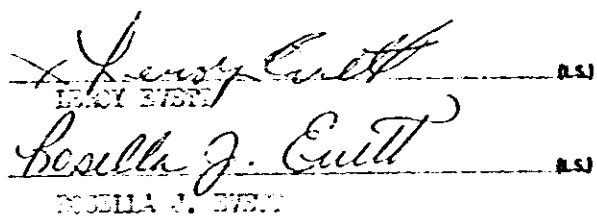 x Leroy Evett (L.S.)
LEROY EVETT
Rosella J. Evett (L.S.)
ROSELLA J. EVETT